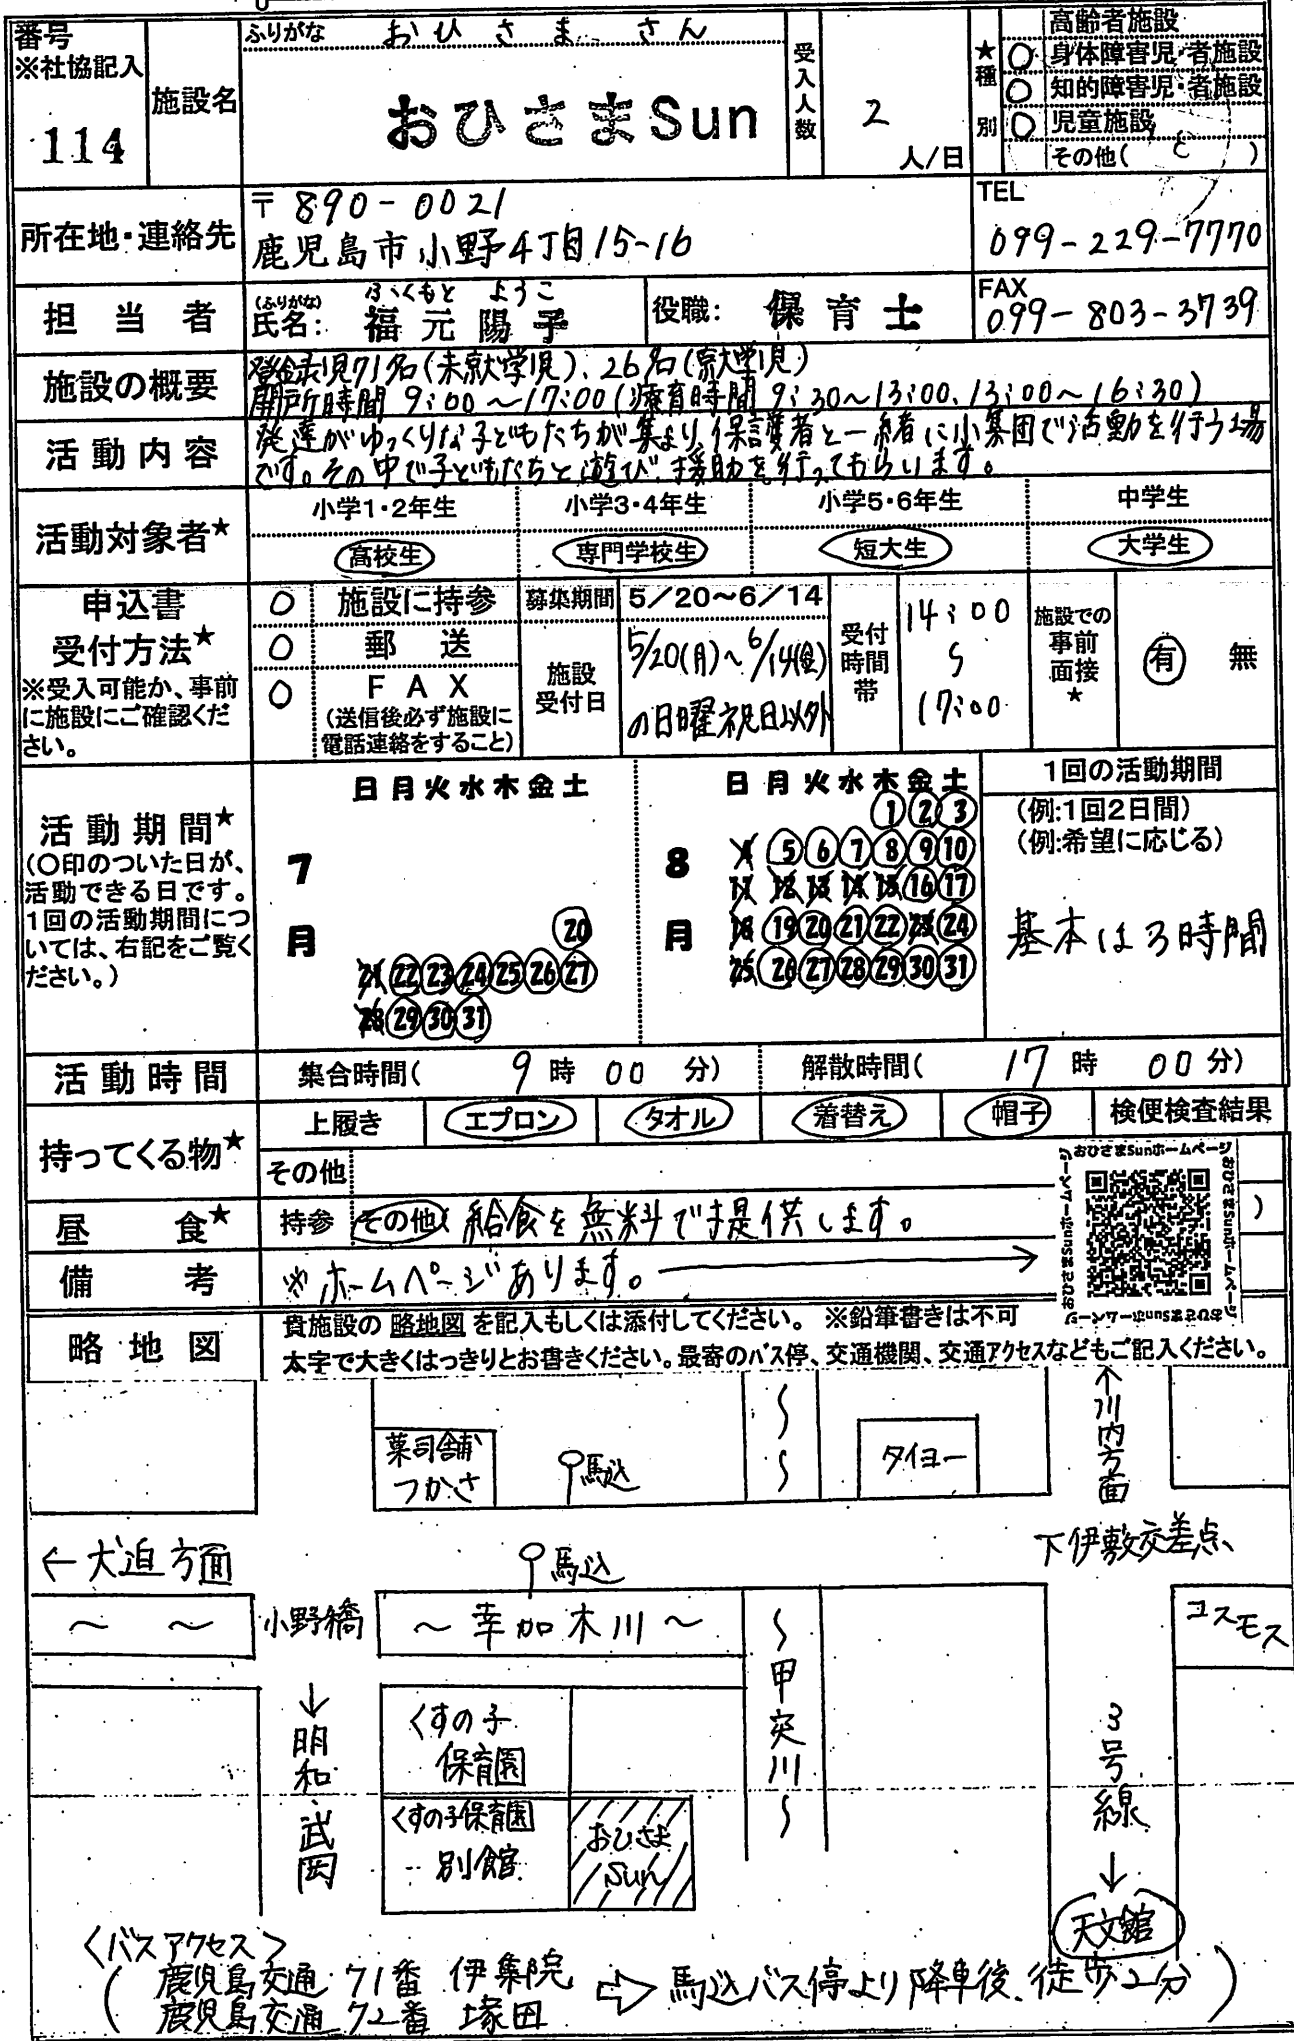 番号
※社協記入
114
施設名
ふりがな おひさまさん
おひさまSun
受入人数
2
人/日
★種別
高齢者施設
○ 身体障害児・者施設
○ 知的障害児・者施設
○ 児童施設
その他( )
所在地・連絡先
〒890-0021
鹿児島市小野4丁目15-16
TEL
099-229-7770
担当者
(ふりがな) ふくもと ようこ
氏名: 福元陽子
役職: 保育士
FAX
099-803-3739
施設の概要
登録児71名(未就学児)、26名(就学児)
開所時間 9:00~17:00(療育時間 9:30~13:00、13:00~16:30)
活動内容
発達がゆっくりな子どもたちが集まり、保護者と一緒に小集団で活動を行う場
です。その中で子どもたちと遊び、援助を行ってもらいます。
活動対象者★
小学1・2年生 小学3・4年生 小学5・6年生 中学生
高校生 専門学校生 短大生 大学生
申込書
受付方法★
※受入可能か、事前
に施設にご確認くだ
さい。
○ 施設に持参
○ 郵送
○ FAX
(送信後必ず施設に
電話連絡をすること)
募集期間 5/20~6/14
施設
受付日
5/20(月)~6/14(金)
の日曜祝日以外
受付
時間
帯
14:00
~
17:00
施設での
事前
面接
★
有 無
活動期間★
(○印のついた日が、
活動できる日です。
1回の活動期間につ
いては、右記をご覧く
ださい。)
7月
日月火水木金土
20
21 22 23 24 25 26 27
28 29 30 31
8月
日月火水木金土
1 2 3
4 5 6 7 8 9 10
11 12 13 14 15 16 17
18 19 20 21 22 23 24
25 26 27 28 29 30 31
1回の活動期間
(例:1回2日間)
(例:希望に応じる)
基本は3時間
活動時間
集合時間( 9時00分) 解散時間( 17時00分)
持ってくる物★
上履き エプロン タオル 着替え 帽子 検便検査結果
その他
昼食★
持参 その他( 給食を無料で提供します。 )
備考
※ホームページあります。→
おひさまSunホームページ
おひさまSunホームページ
おひさまSunホームページ
おひさまSunホームページ
略地図
貴施設の略地図を記入もしくは添付してください。 ※鉛筆書きは不可
太字で大きくはっきりとお書きください。最寄のバス停、交通機関、交通アクセスなどもご記入ください。
菓司舗
つかさ
馬込
タイヨー
↑川内方面
←犬迫方面
馬込
下伊敷交差点
~ ~
小野橋
~幸加木川~
コスモス
~甲突川~
↓明和・武岡
くすの子
保育園
くすの子保育園
別館
おひさま
Sun
3号線
↓
天文館
<バスアクセス>
(鹿児島交通 71番 伊集院
鹿児島交通 72番 塚田
⇨ 馬込バス停より降車後、徒歩2分)